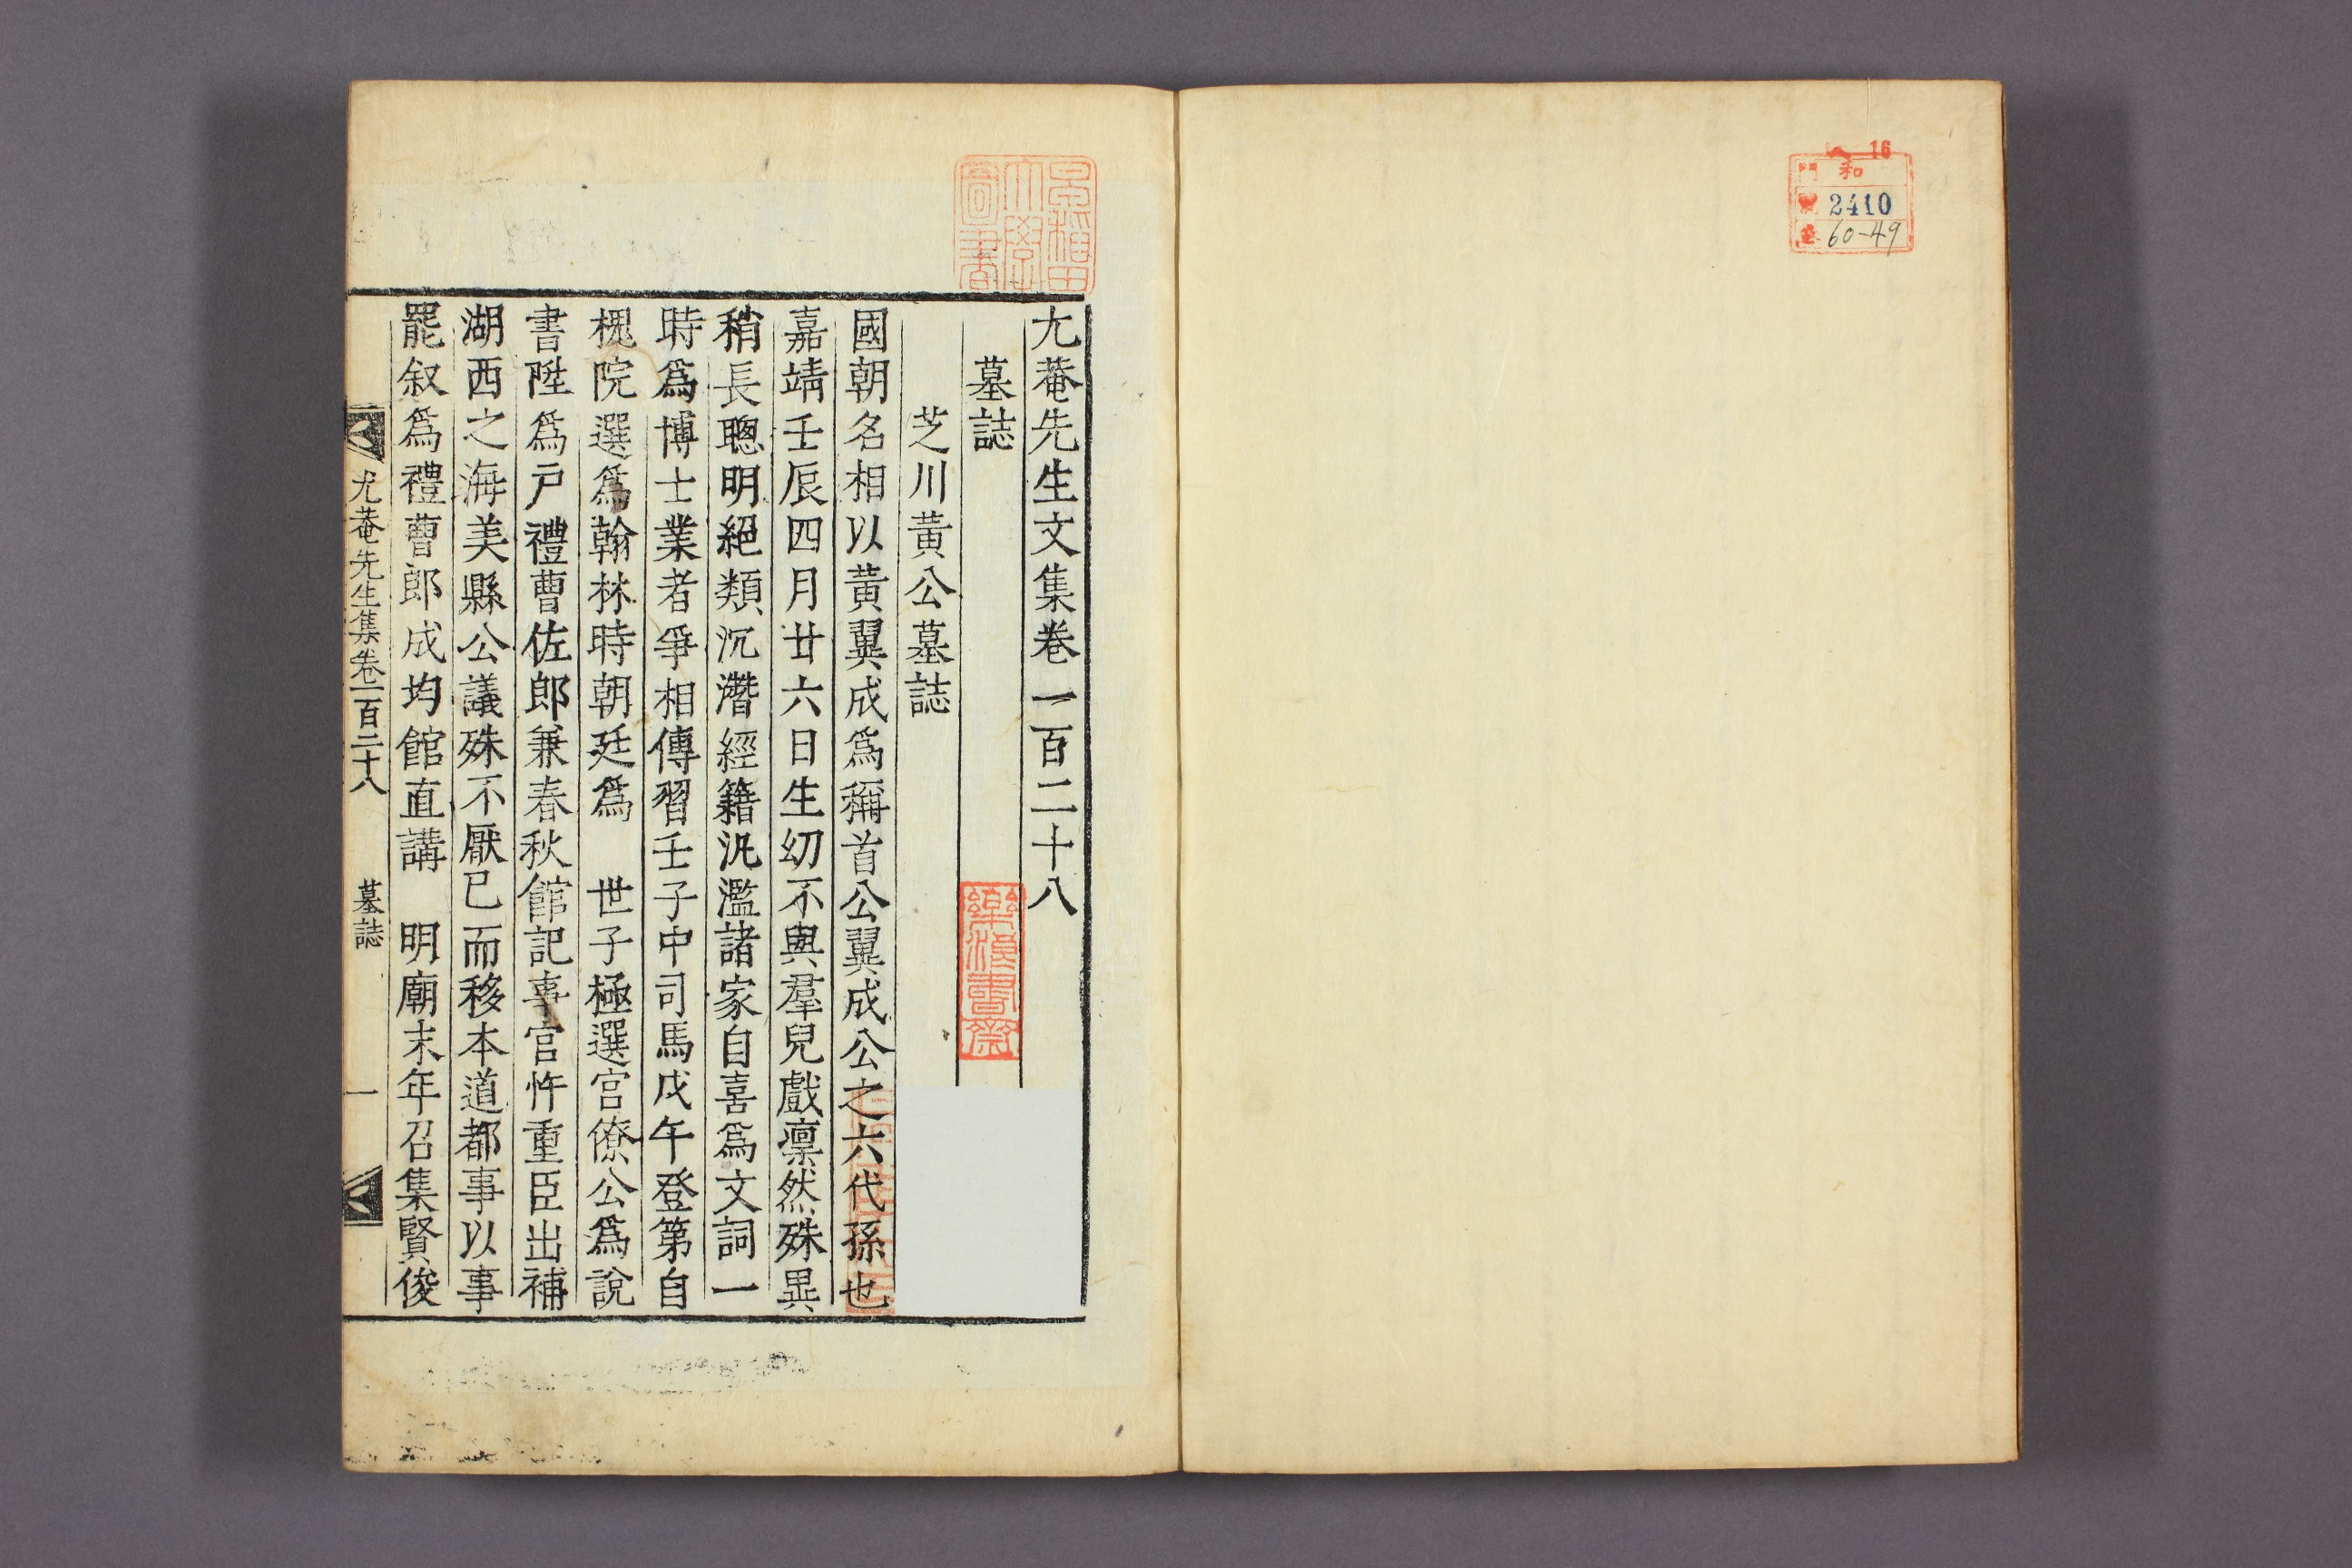 16
門 和
號 2410
卷 60-49
早稲田大學圖書
尤菴先生文集卷一百二十八
墓誌
芝川黃公墓誌
國朝名相以黃翼成爲稱首公翼成公之六代孫也
嘉靖壬辰四月廿六日生幼不與羣兒戲凛然殊異
稍長聰明絕類沉潛經籍汎濫諸家自喜爲文詞一
時爲博士業者爭相傳習壬子中司馬戊午登第自
槐院選爲翰林時朝廷爲 世子極選宮僚公爲說
書陞爲戶禮曹佐郎兼春秋館記事官忤重臣出補
湖西之海美縣公議殊不厭已而移本道都事以事
罷叙爲禮曹郎成均館直講 明廟末年召集賢俊
尤菴先生集卷一百二十八 墓誌 一